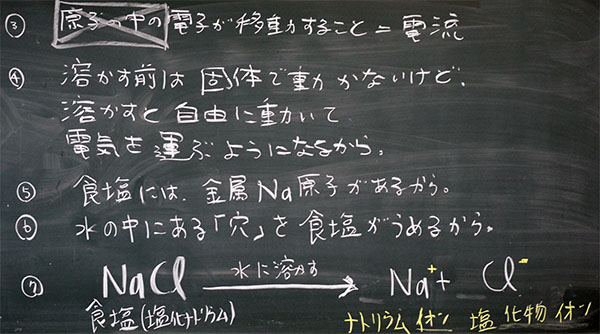 ③ 原子の中の電子が移動すること = 電流
④ 溶かす前は固体で動かないけど、
溶かすと自由に動いて
電気を運ぶようになるから。
⑤ 食塩には、金属Na原子があるから。
⑥ 水の中にある「穴」を食塩がうめるから。
⑦ NaCl 水に溶かす → Na⁺ + Cl⁻
食塩(塩化ナトリウム) ナトリウムイオン 塩化物イオン